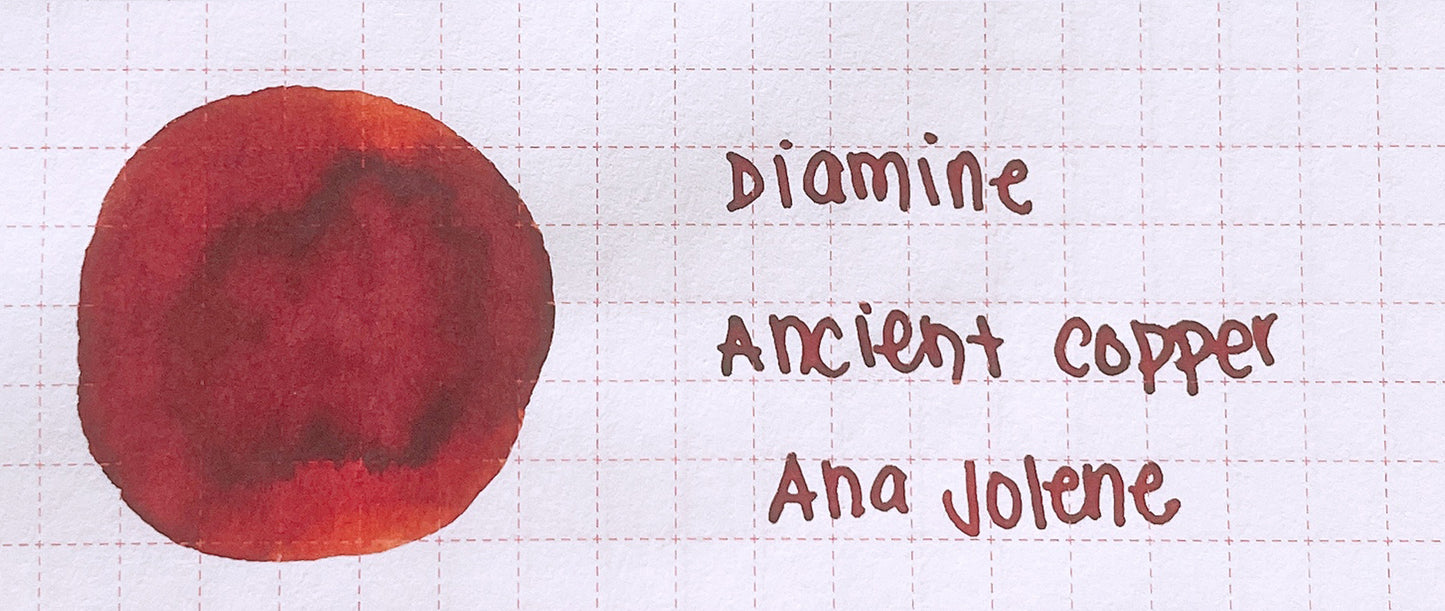 Diamine
Ancient Copper
Ana Jolene